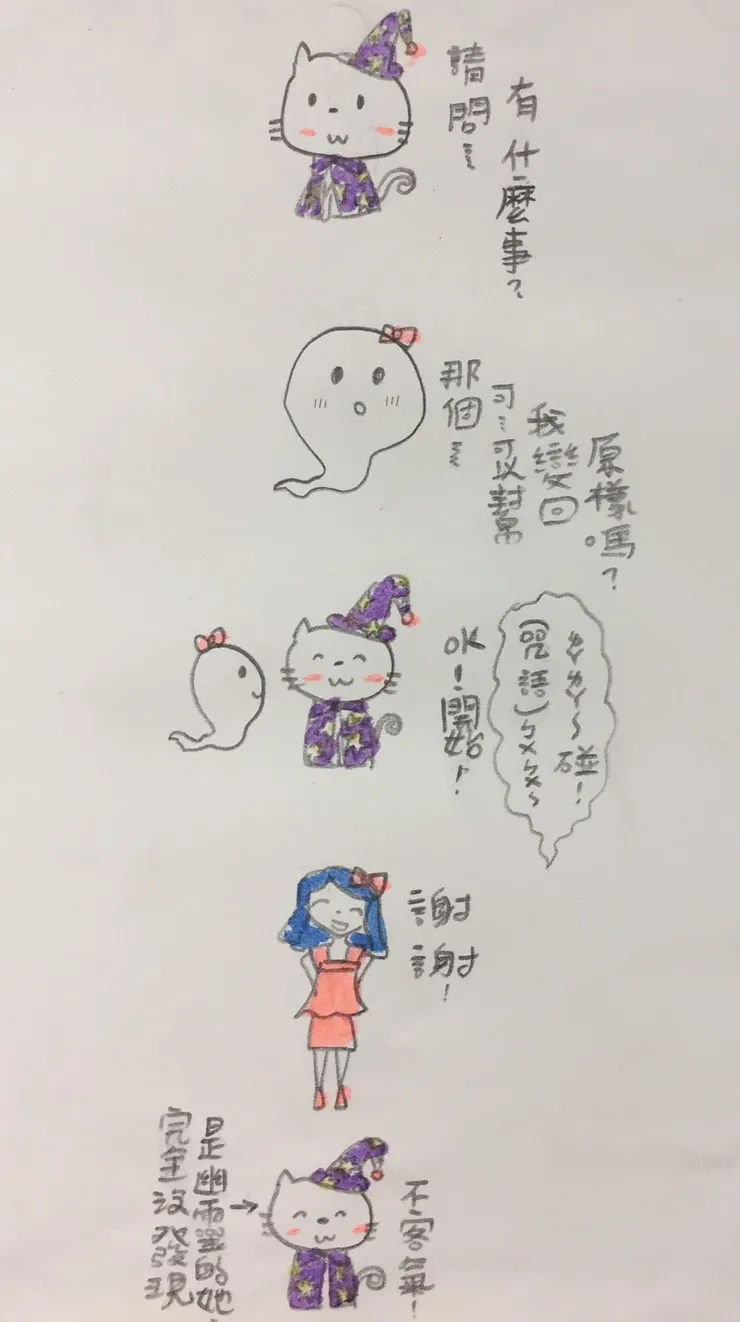 請問⋯
有什麼事?
那個⋯
可⋯可以幫
我變回
原樣嗎?
OK!開始!
(咒語)ㄅㄨㄅㄨ~
ㄆㄚㄆㄚ~碰!
謝謝!
完全沒發現
是幽靈的她
→
不客氣!